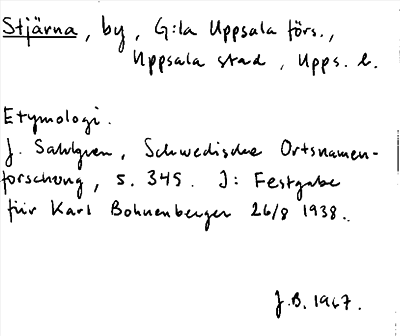 Stjärna, by, G:la Uppsala förs.,
Uppsala stad, Upps. l.
Etymologi.
J. Sahlgren, Schwedische Ortsnamen-
forschung, s. 345. I: Festgabe
für Karl Bohnenberger 26/8 1938.
J.B. 1967.